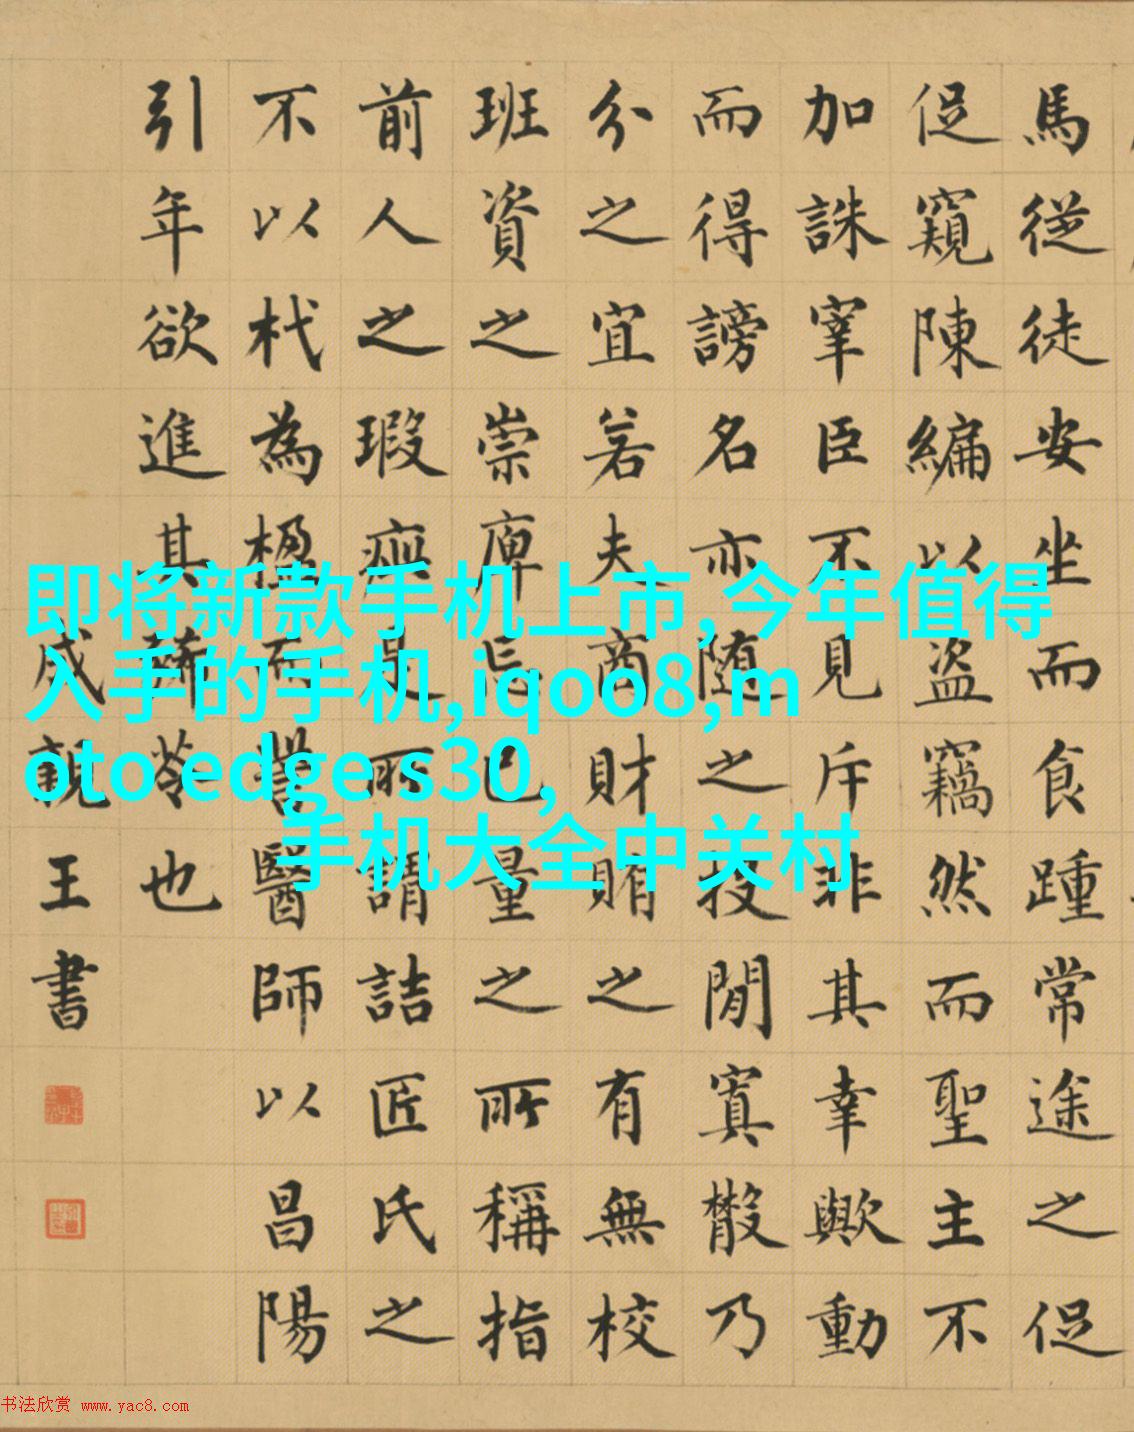 馬從徒安坐而食踵常途之促
促窺陳編以盜竊然而聖主不
加誅宰臣不見斥非其幸歟動
而得謗名亦随之投閒寘散乃
分之宜若夫商財賄之有無校
班資之崇庳忘己量之所稱指
前人之瑕疵是所謂詰匠氏之
不以杙為楹而訾醫師以昌陽
引年欲進其豨苓也
成親王書
即将新款手机上市,今年值得
入手的手机,iqoo8,m
oto edge s30,
手机大全中关村
书法欣赏 www.yac8.com